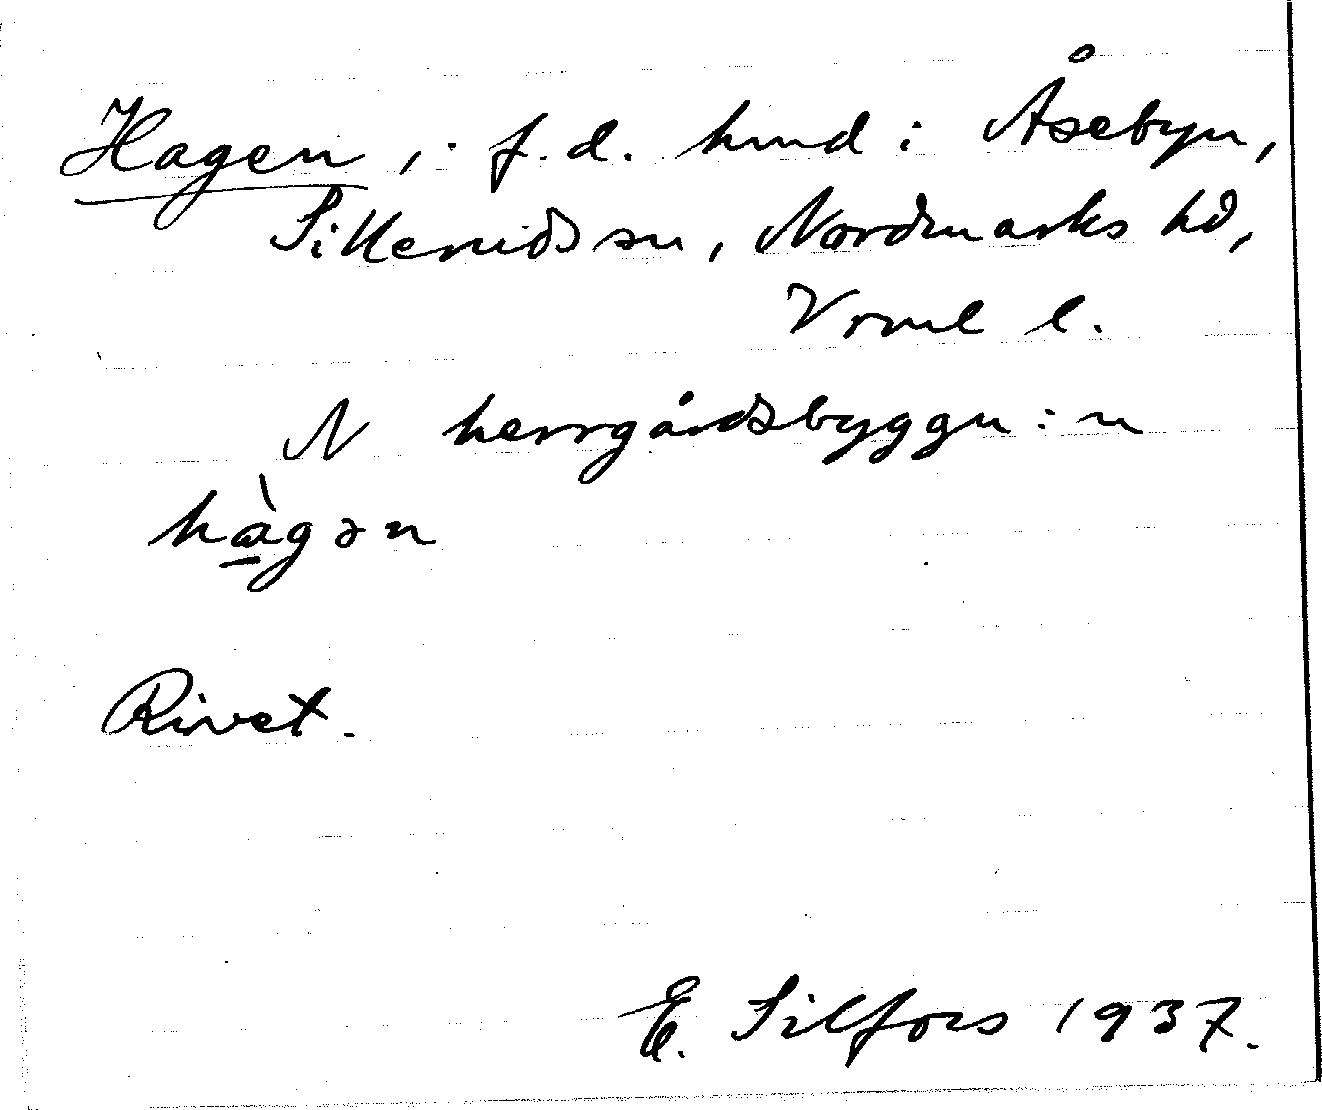 Hagen, f.d. hmd i Åsebyn,
Silleruds sn, Nordmarks hd,
Vrml l.
N herrgårdsbyggn:n
hàgən
Rivet.
E. Silfors 1937.